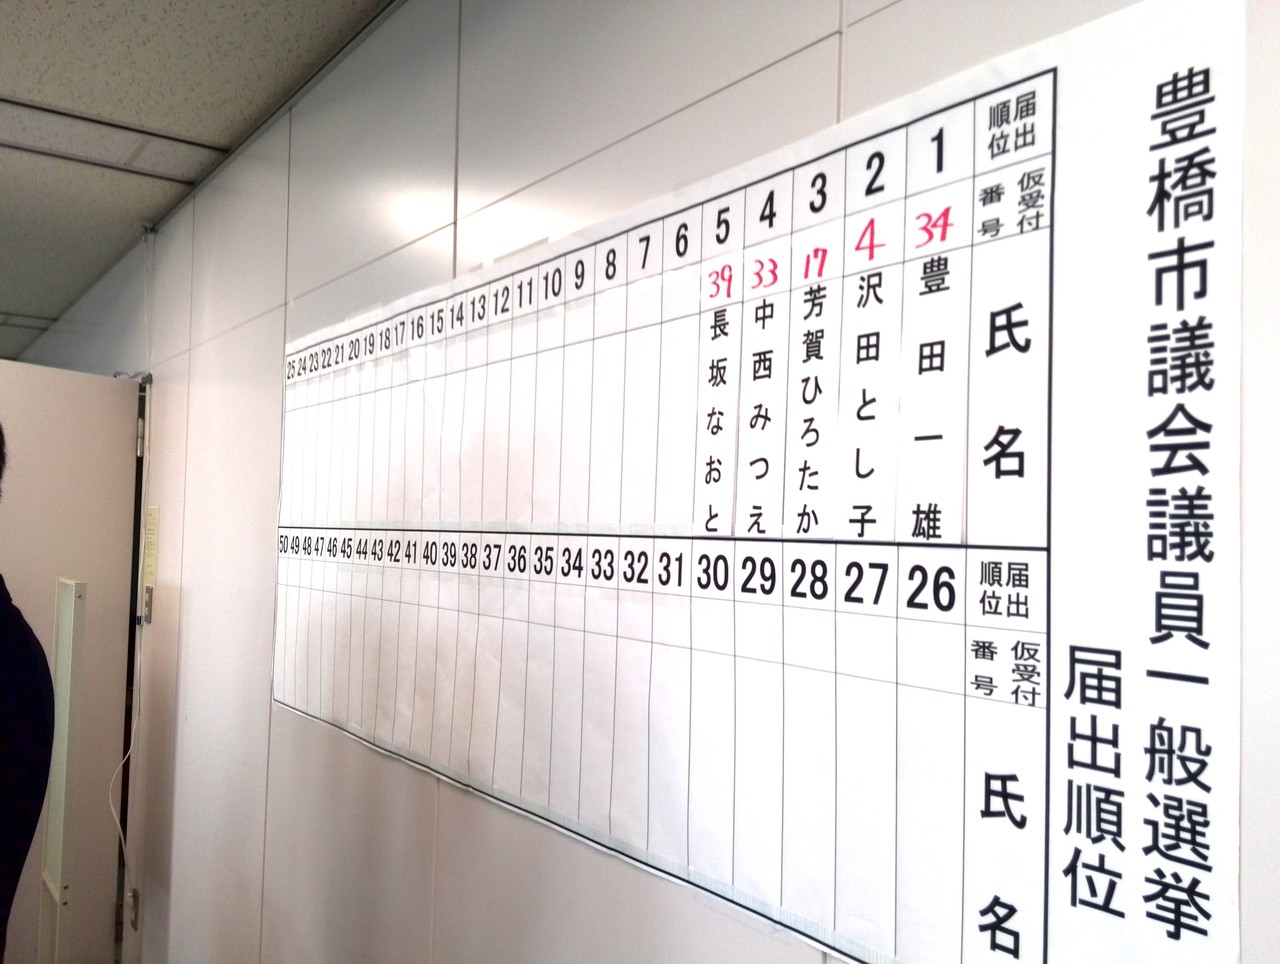 豊橋市議会議員一般選挙
届出順位
届出順位
仮受付番号
氏名
1
34
豊田一雄
2
4
沢田とし子
3
17
芳賀ひろたか
4
33
中西みつえ
5
39
長坂なおと
6
7
8
9
10
11
12
13
14
15
16
17
18
19
20
21
22
23
24
25
届出順位
仮受付番号
氏名
26
27
28
29
30
31
32
33
34
35
36
37
38
39
40
41
42
43
44
45
46
47
48
49
50